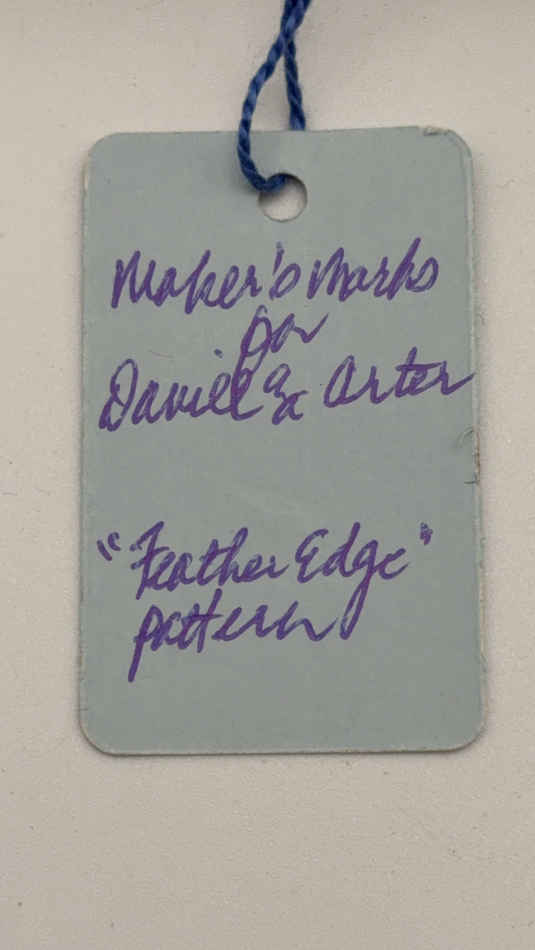 Maker's Marks
for
Daniel & Arter
"Feather Edge"
pattern